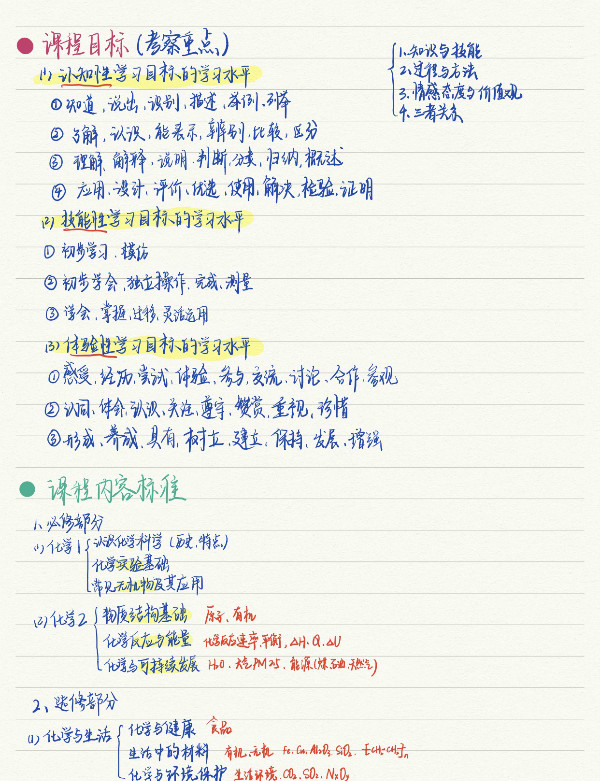 课程目标（考察重点）
1.知识与技能
2.过程与方法
3.情感态度与价值观
4.三者关系
(1) 认知性学习目标的学习水平
①知道，说出，识别，描述，举例，列举
② 了解，认识，能表示，辨别，比较，区分
③ 理解，解释，说明，判断，分类，归纳，概述
④ 应用，设计，评价，优选，使用，解决，检验，证明
(2) 技能性学习目标的学习水平
① 初步学习，模仿
② 初步学会，独立操作，完成，测量
③ 学会，掌握，迁移，灵活运用
(3) 体验性学习目标的学习水平
①感受，经历，尝试，体验，参与，交流，讨论，合作，参观
② 认同，体会，认识，关注，遵守，赞赏，重视，珍惜
③形成，养成，具有，树立，建立，保持，发展，增强
课程内容标准
1、必修部分
(1) 化学1 认识化学科学（历史，特点）
化学实验基础
常见无机物及其应用
(2) 化学2 物质结构基础 原子、有机
化学反应与能量 化学反应速率，平衡，△H、Q、△U
化学与可持续发展 H₂O、大气PM2.5，能源（煤石油，天然气）
2、选修部分
(1) 化学与生活 化学与健康 食品
生活中的材料 有机，无机 Fe、Cu、Al₂O₃、SiO₂、[CH₂-CH₂]n
化学与环境保护 生活环境，CO₂、SO₂、NxOy